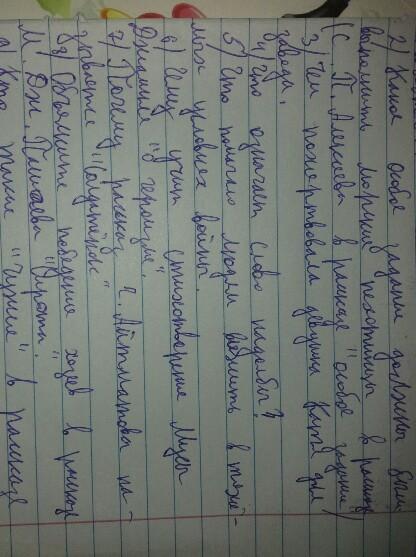 2) Какое особое задание должны были
выполнить морские пехотинцы в рассказе
(С. П. Алексеева в рассказе "Особое задание")
3) Чем пожертвовала девушка Катя для
завода.
4) Что означает слово надолбы?
5) Что помогало людям выжить в тяжё-
лых условиях войны.
6) Чему учит стихотворение Мусы
Джалиля "героизм".
7) Почему рассказ Ч. Айтматова на-
зывается "Солдатёнок"
8) Объясните поведение хозяев в рассказе
М. Дж. "Сирота".
9) Кто такие "Чужие" в рассказе